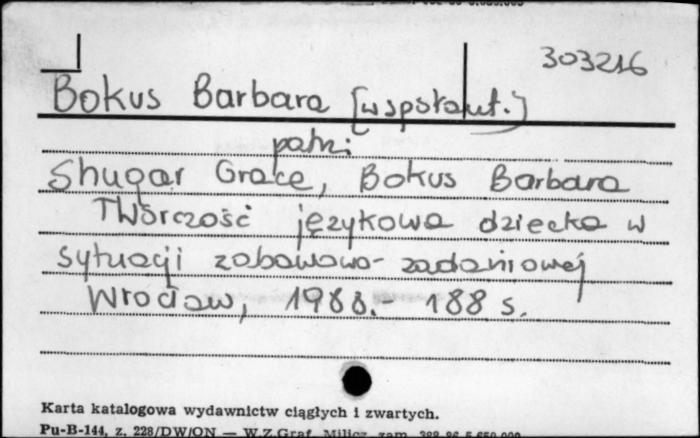 303216
Bokus Barbara [współaut.]
patrz:
Shugar Grace, Bokus Barbara
Twórczość językowa dziecka w
sytuacji zabawowo-zadaniowej
Wrocław, 1988.- 188 s.
Karta katalogowa wydawnictw ciągłych i zwartych.
Pu-B-144, z. 228/DW/ON — W.Z.Graf. Milicz, zam.